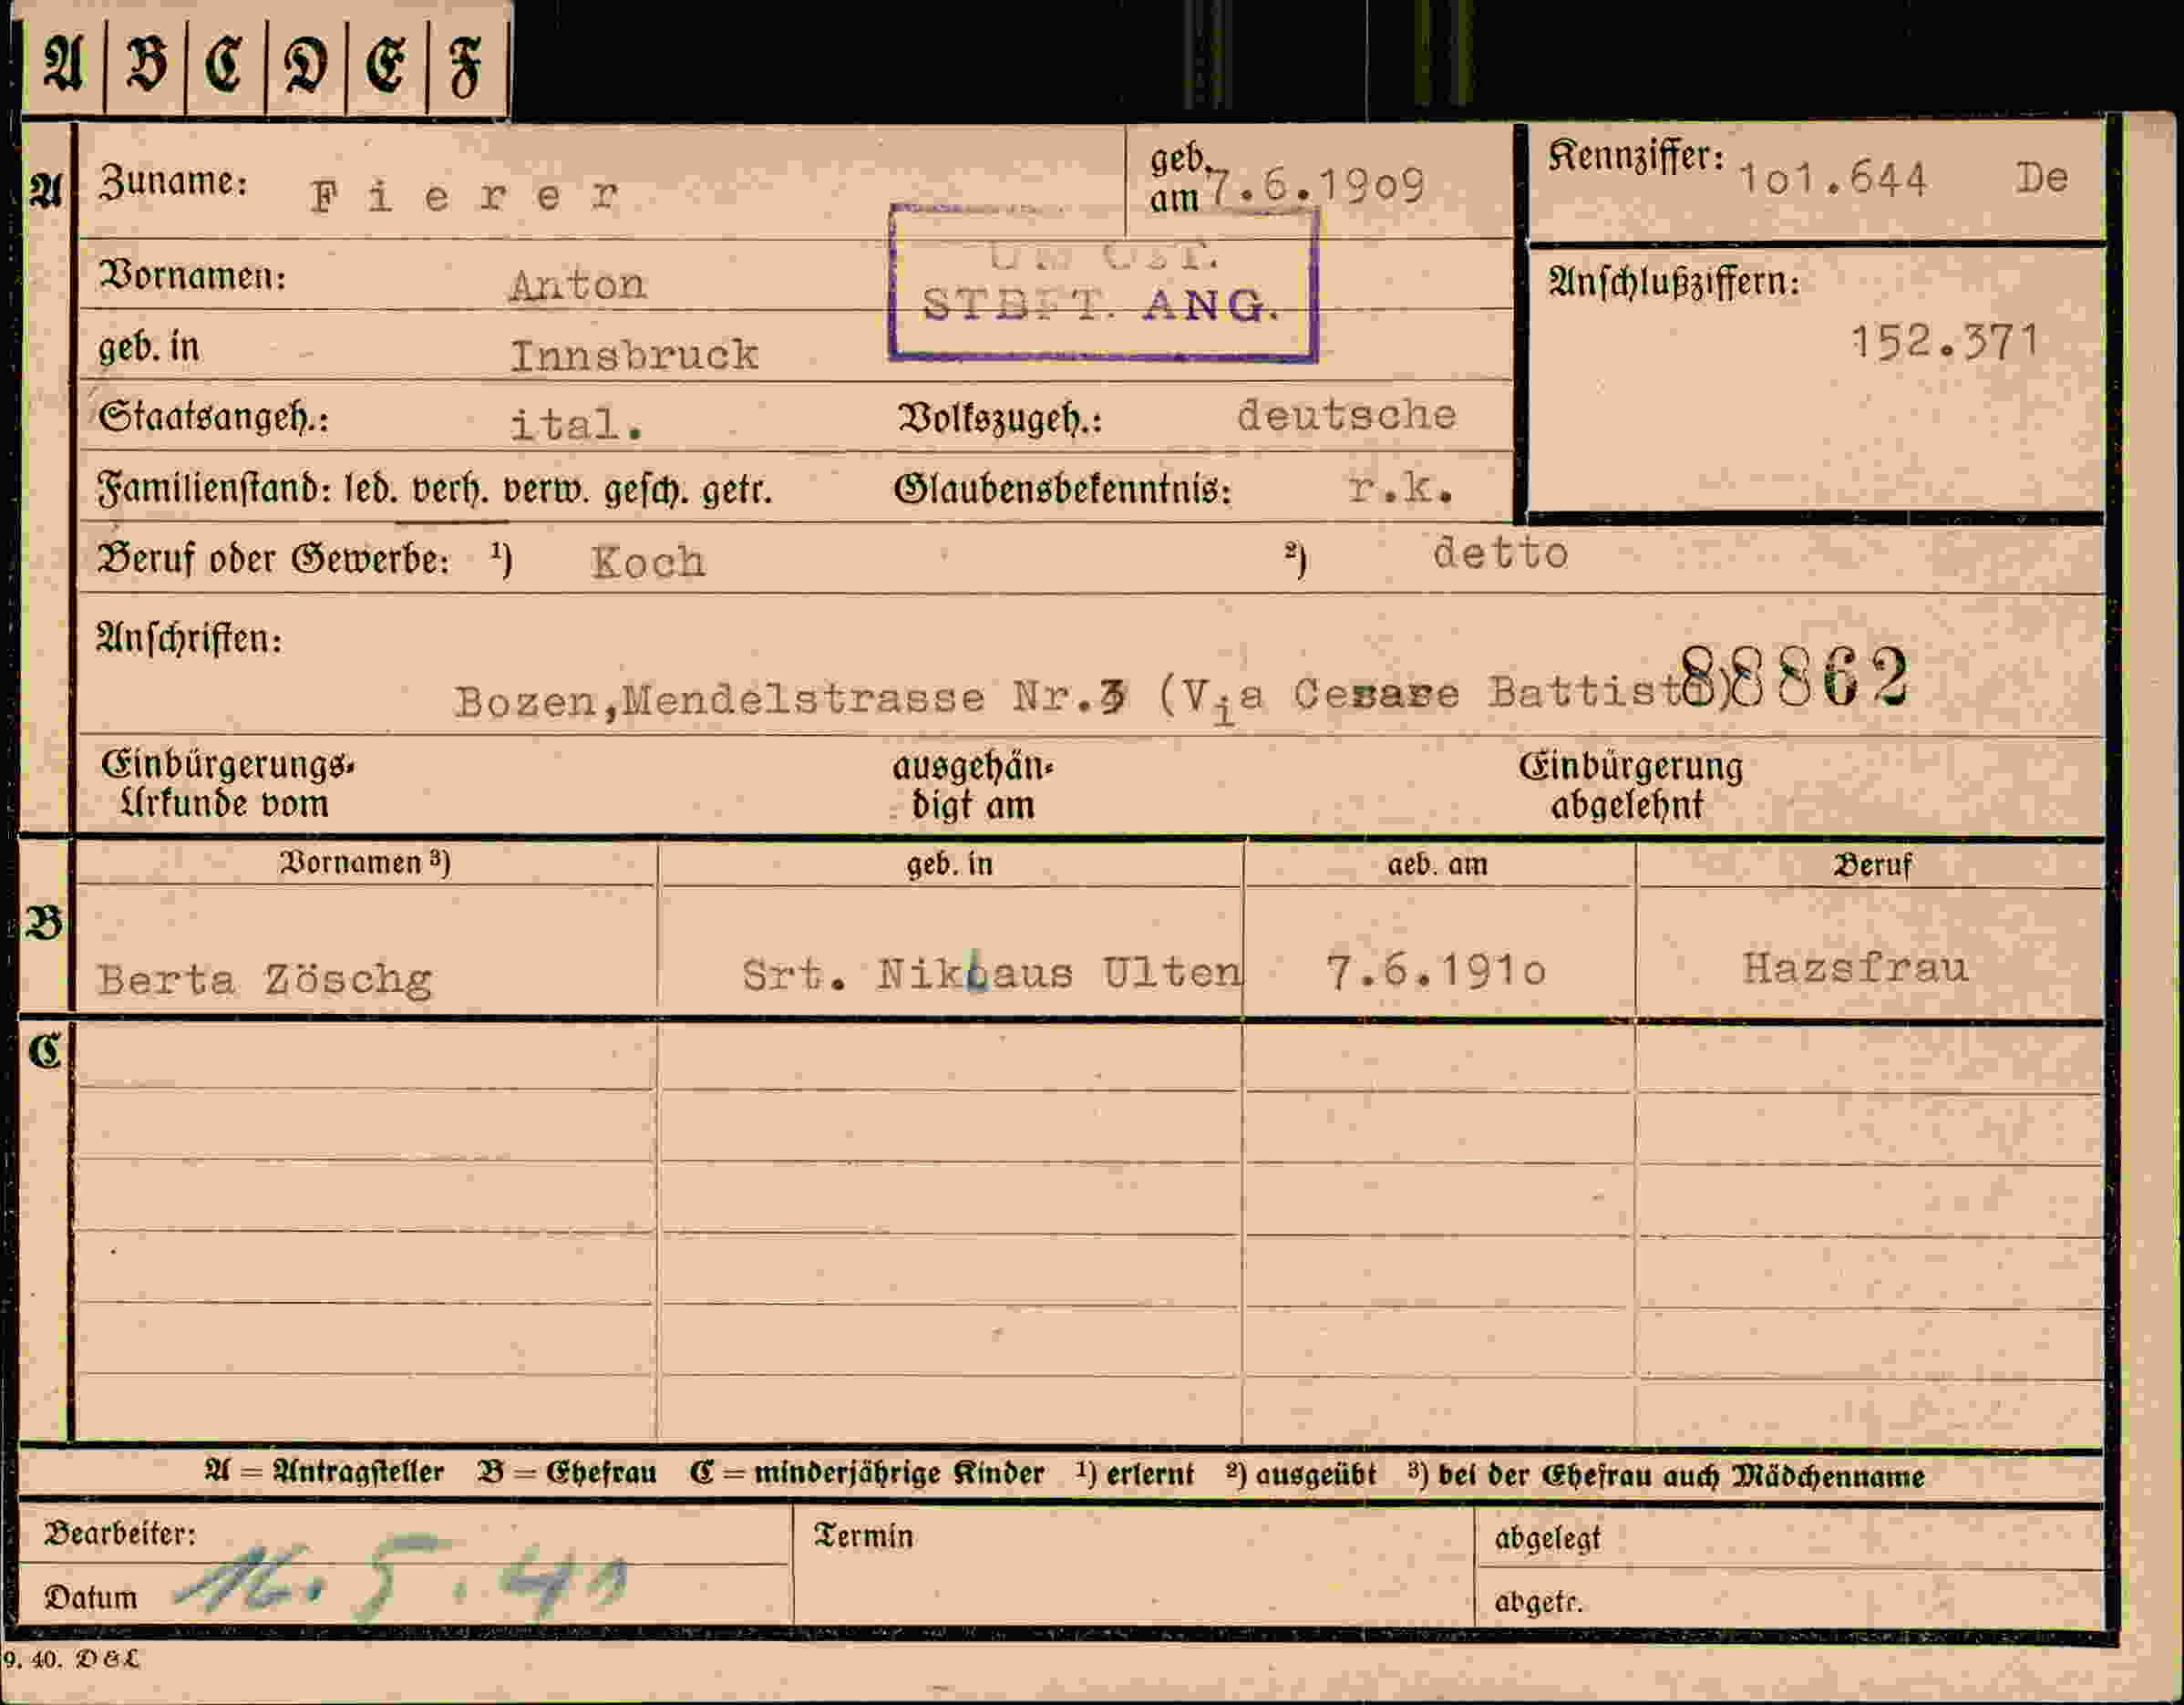 A B C D E F
A Zuname: Fierer geb. am 7.6.1909 Kennziffer: 1o1.644 De
Vornamen: Anton
STBFT. ANG.
Anschlußziffern:
152.371
geb. in Innsbruck
Staatsangeh.: ital. Volkszugeh.: deutsche
Familienstand: led. verh. verw. gesch. getr. Glaubensbekenntnis: r.k.
Beruf oder Gewerbe: ¹) Koch ²) detto
Anschriften:
Bozen,Mendelstrasse Nr.3 (Via Cesare Battisti) 88862
Einbürgerungs- Urkunde vom ausgehän- digt am Einbürgerung abgelehnt
Vornamen ³) geb. in geb. am Beruf
B
Berta Zöschg Srt. Niklaus Ulten 7.6.191o Hazsfrau
C
A = Antragsteller B = Ehefrau C = minderjährige Kinder ¹) erlernt ²) ausgeübt ³) bei der Ehefrau auch Mädchenname
Bearbeiter: Termin abgelegt
Datum 16.5.41 abgetr.
9. 40. D&L